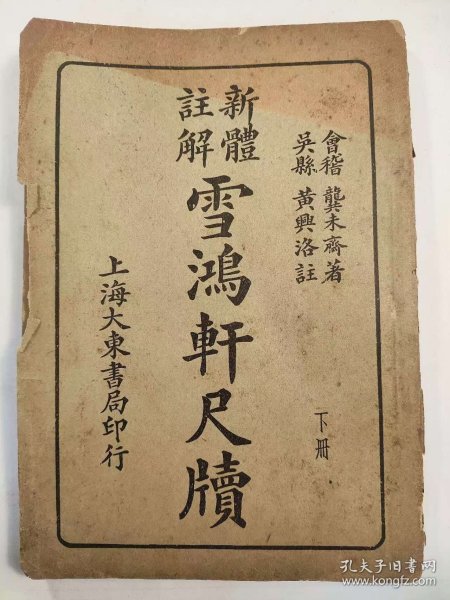 會稽 龔未齋著
吳縣 黃興洛註
下冊
新體
註解
雪鴻軒尺牘
上海大東書局印行
孔夫子旧书网
www.kongfz.com